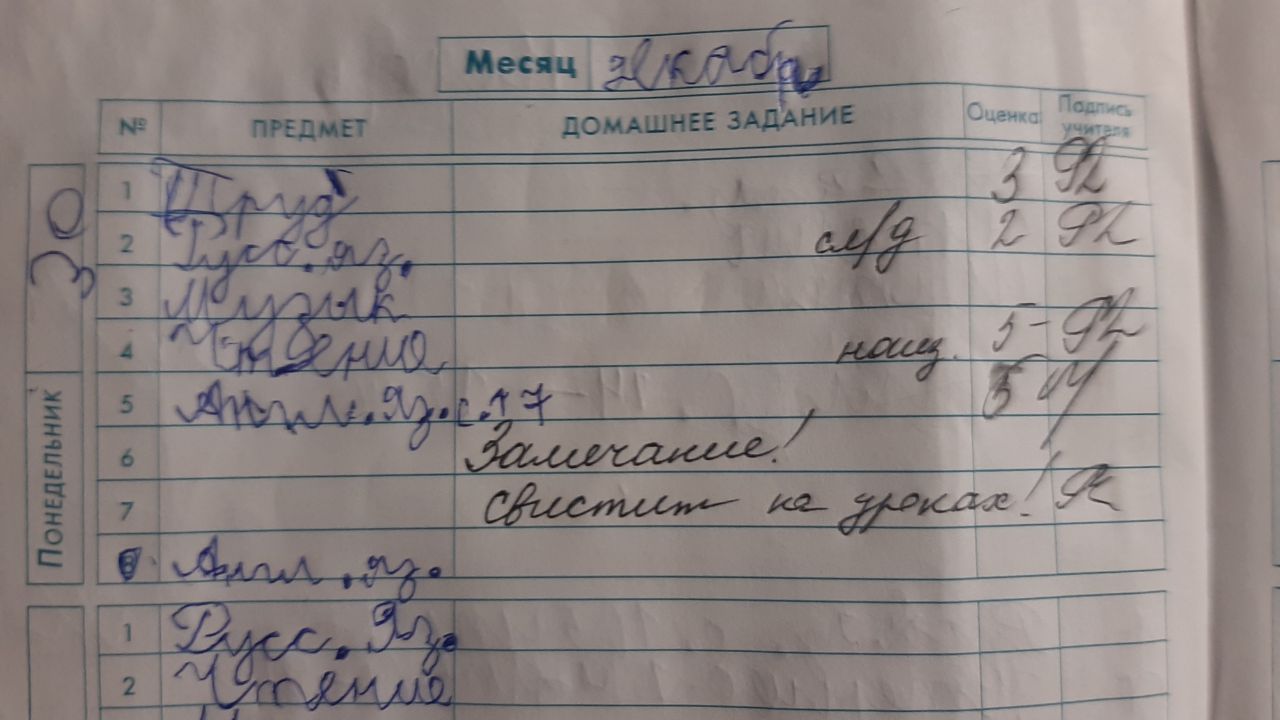 Месяц декабрь
№ ПРЕДМЕТ ДОМАШНЕЕ ЗАДАНИЕ Оценка Подпись учителя
30
Понедельник
1 Труд 3
2 Русс. яз. сл/д 2
3 Музык
4 Чтение наиз. 5-
5 Англ. яз. с. 17 5
6 Замечание!
7 свистит на уроках!
8 Англ. яз.
1 Русс. Яз.
2 Чтение